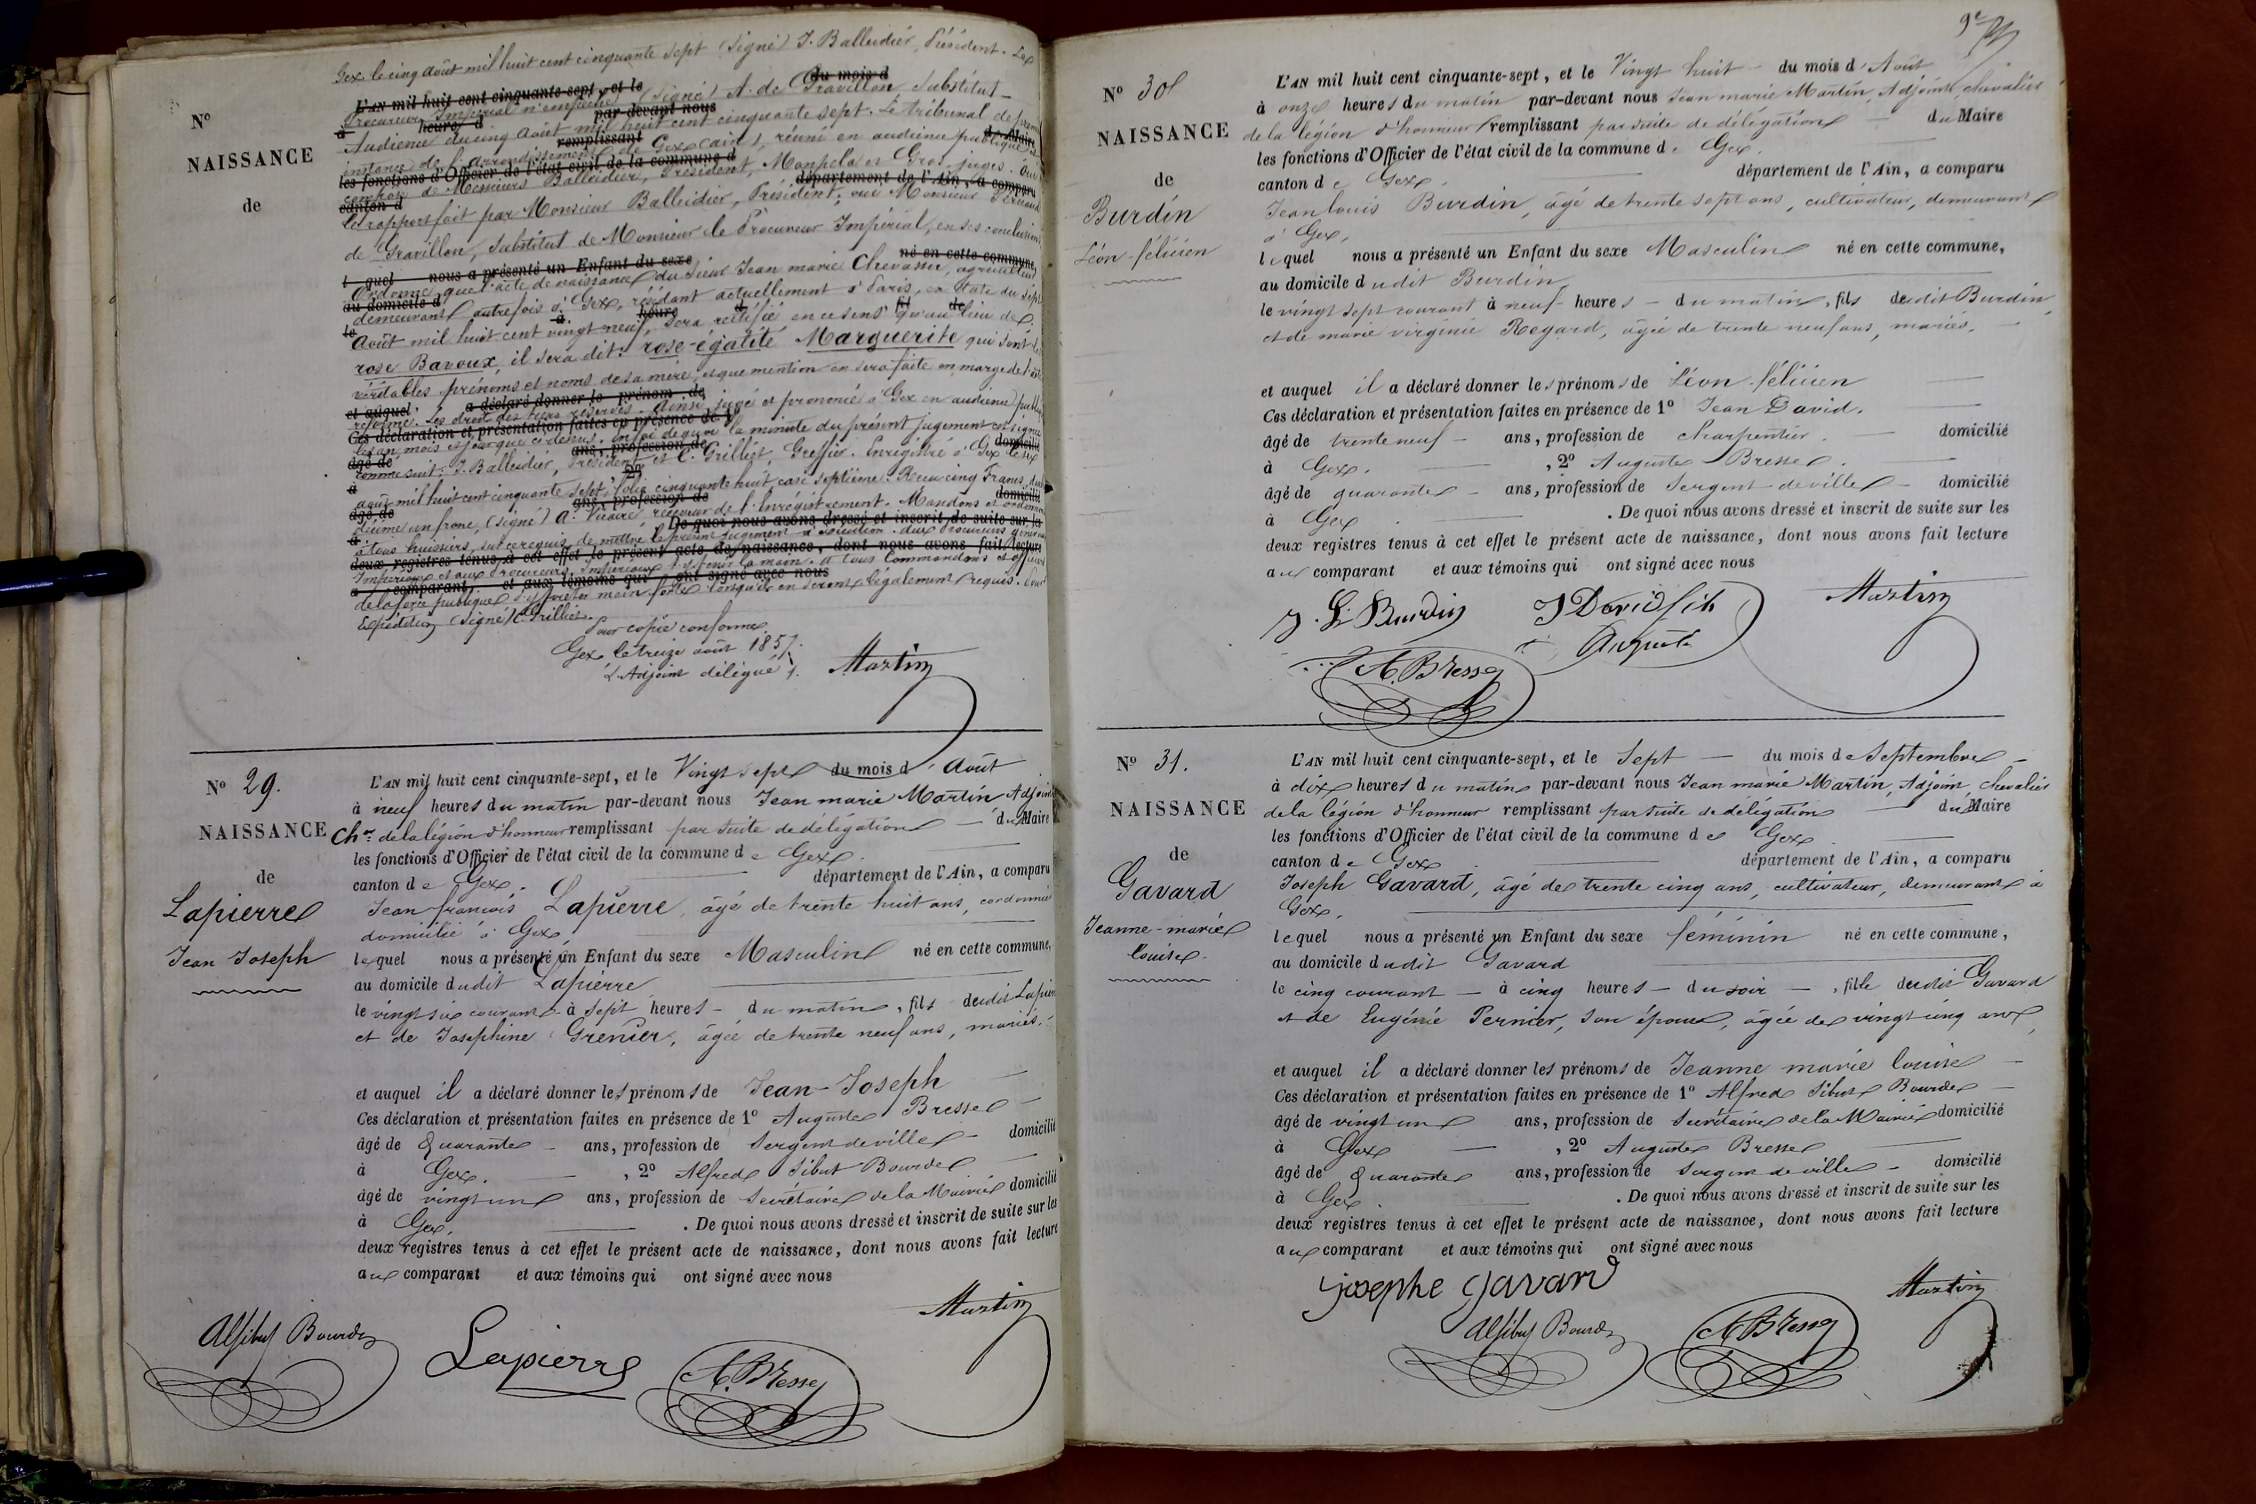 Gex le cinq août mil huit cent cinquante sept (signé) J. Balleidier, Président. Le
L'AN mil huit cent cinquante-sept, et le du mois d
Procureur Impérial n'empêche (signé) A. de Gravillon, Substitut
à heures d par-devant nous
Audience du cinq août mil huit cent cinquante sept. Le tribunal de
remplissant
instance de l'arrondissement de Gex (Ain), réuni en audience publique
les fonctions d'Officier de l'état civil de la commune d
de Messieurs Balleidier, Président, et Gros juges. Ouï
canton d département de l'Ain, a comparu
le rapport fait par Monsieur Balleidier, Président, ouï Monsieur
de Gravillon, Substitut de Monsieur le Procureur Impérial, en ses conclusions
l quel nous a présenté un Enfant du sexe né en cette commune,
Ordonne que l'acte de naissance du sieur Jean marie Chevassu, agriculteur
au domicile d
demeurant autrefois à Gex, résidant actuellement à Paris, en date du sept
le à heure d fil de
Août mil huit cent vingt neuf, sera rectifié en ce sens qu'au lieu de
rose Bavoux, il sera dit: rose-égalité Marguerite qui sont les
véritables prénoms et noms de sa mère, et que mention en sera faite en marge de l'acte
et auquel a déclaré donner le prénom de
réformé. Les droits des tiers réservés. Ainsi jugé et prononcé à Gex en audience publique
Ces déclaration et présentation faites en présence de 1º
les an mois et jour que ci-dessus. En foi de quoi la minute du présent jugement est signée
âgé de ans, profession de domicilié
comme suit: J. Balleidier, Président et C. Grillier, Greffier. Enregistré à Gex le six
à , 2º
août mil huit cent cinquante sept, folio cinquante huit case septième. Reçu cinq francs,
âgé de ans, profession de domicilié
décime un franc, (signé) A. Vicaire, receveur de l'Enregistrement. Mandons et ordonnons
à . De quoi nous avons dressé et inscrit de suite sur les
à tous huissiers, sur ce requis, de mettre le présent jugement à exécution. aux Procureurs généraux
deux registres tenus à cet effet le présent acte de naissance, dont nous avons fait lecture
Impériaux et aux Procureurs Impériaux d'y tenir la main. à tous Commandants et officiers
a comparant et aux témoins qui ont signé avec nous
de la force publique d'y prêter main forte lorsqu'ils en seront légalement requis.
Expédition (signé) C. Grillier.
Pour copie conforme
Gex le treize août 1857.
L'Adjoint délégué.
Martin
Nº
NAISSANCE
de
Nº 29.
NAISSANCE
de
Lapierre
Jean Joseph
L'AN mil huit cent cinquante-sept, et le Vingt sept du mois d'Août
à neuf heures du matin par-devant nous Jean marie Martin Adjoint
Cher de la légion d'honneur remplissant par suite de délégation du Maire
les fonctions d'Officier de l'état civil de la commune de Gex.
canton de Gex. département de l'Ain, a comparu
Jean françois Lapierre, âgé de trente huit ans, cordonnier
domicilié à Gex
lequel nous a présenté un Enfant du sexe Masculin né en cette commune,
au domicile dudit Lapierre
le vingt six courant à sept heures du matin, fils dudit Lapierre
et de Josephine Grenier, âgée de trente neuf ans, mariés.
et auquel il a déclaré donner les prénoms de Jean-Joseph
Ces déclaration et présentation faites en présence de 1º Auguste Bresse
âgé de Quarante ans, profession de Sergent de ville domicilié
à Gex. , 2º Alfred Sibut Bourde
âgé de vingt un ans, profession de Secrétaire de la Mairie domicilié
à Gex. . De quoi nous avons dressé et inscrit de suite sur les
deux registres tenus à cet effet le présent acte de naissance, dont nous avons fait lecture
aux comparant et aux témoins qui ont signé avec nous
Martin
Alf Sibut Bourde
Lapierre
A. Bresse
9e
Nº 30
NAISSANCE
de
Burdin
Léon-félicien
L'AN mil huit cent cinquante-sept, et le Vingt huit du mois d'Août
à onze heures du matin par-devant nous Jean marie Martin, Adjoint, chevalier
de la légion d'honneur remplissant par suite de délégation du Maire
les fonctions d'Officier de l'état civil de la commune de Gex.
canton de Gex. département de l'Ain, a comparu
Jean louis Burdin, âgé de trente sept ans, cultivateur, demeurant
à Gex,
lequel nous a présenté un Enfant du sexe Masculin né en cette commune,
au domicile dudit Burdin
le vingt sept courant à neuf heures du matin, fils dudit Burdin,
et de marie virginie Regard, âgée de trente neuf ans, mariés.
et auquel il a déclaré donner les prénoms de Léon-félicien
Ces déclaration et présentation faites en présence de 1º Jean David.
âgé de trente neuf ans, profession de charpentier. domicilié
à Gex. , 2º Auguste Bresse.
âgé de quarante ans, profession de Sergent de ville domicilié
à Gex . De quoi nous avons dressé et inscrit de suite sur les
deux registres tenus à cet effet le présent acte de naissance, dont nous avons fait lecture
aux comparant et aux témoins qui ont signé avec nous
J. L. Burdin
J David fils
Martin
Auguste
A. Bresse
Nº 31.
NAISSANCE
de
Gavard
Jeanne-marie
louise
L'AN mil huit cent cinquante-sept, et le Sept du mois de Septembre
à dix heures du matin par-devant nous Jean marie Martin, Adjoint, chevalier
de la légion d'honneur remplissant par suite de délégation du Maire
les fonctions d'Officier de l'état civil de la commune de Gex
canton de Gex département de l'Ain, a comparu
Joseph Gavard, âgé de trente cinq ans, cultivateur, demeurant à
Gex,
lequel nous a présenté un Enfant du sexe féminin né en cette commune,
au domicile dudit Gavard
le cinq courant à cinq heures du soir, fille dudit Gavard
et de Eugénie Pernier, son épouse, âgée de vingt cinq ans,
et auquel il a déclaré donner les prénoms de Jeanne marie louise
Ces déclaration et présentation faites en présence de 1º Alfred Sibut Bourde
âgé de vingt un ans, profession de Secrétaire de la Mairie domicilié
à Gex , 2º Auguste Bresse
âgé de Quarante ans, profession de Sergent de ville domicilié
à Gex. . De quoi nous avons dressé et inscrit de suite sur les
deux registres tenus à cet effet le présent acte de naissance, dont nous avons fait lecture
aux comparant et aux témoins qui ont signé avec nous
josephe gavard
Martin
Alf Sibut Bourde
A. Bresse